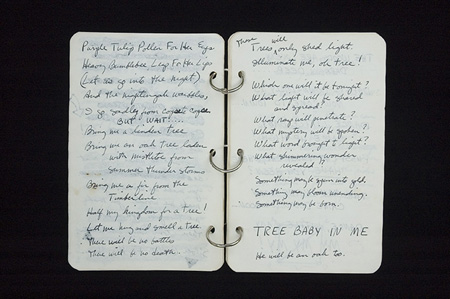 Purple Tulip Pollen For Her Eyes
Heavy Bumblebee Legs For Her Lips
(Let us go into the night)
And the nightingale warbles,
I go sadly from
BUT WAIT!...
Bring me a linden tree
Bring me an oak tree laden
with mistletoe from
Summer thunder storms
Bring me a fir from the
Timberline
Half my kingdom for a tree!
Let me hug and smell a tree.
There will be no battles
There will be no death..
Those will
Trees, only shed light.
Illuminate me, oh tree!
Which one will it be tonight?
What light will be shared
and spread?
What ray will penetrate?
What mystery will be spoken?
What word brought to light?
What shimmering wonder
revealed!?
Something maybe spun into gold.
Something may bloom unending.
Something may be born.
TREE BABY IN ME
He will be an oak too.